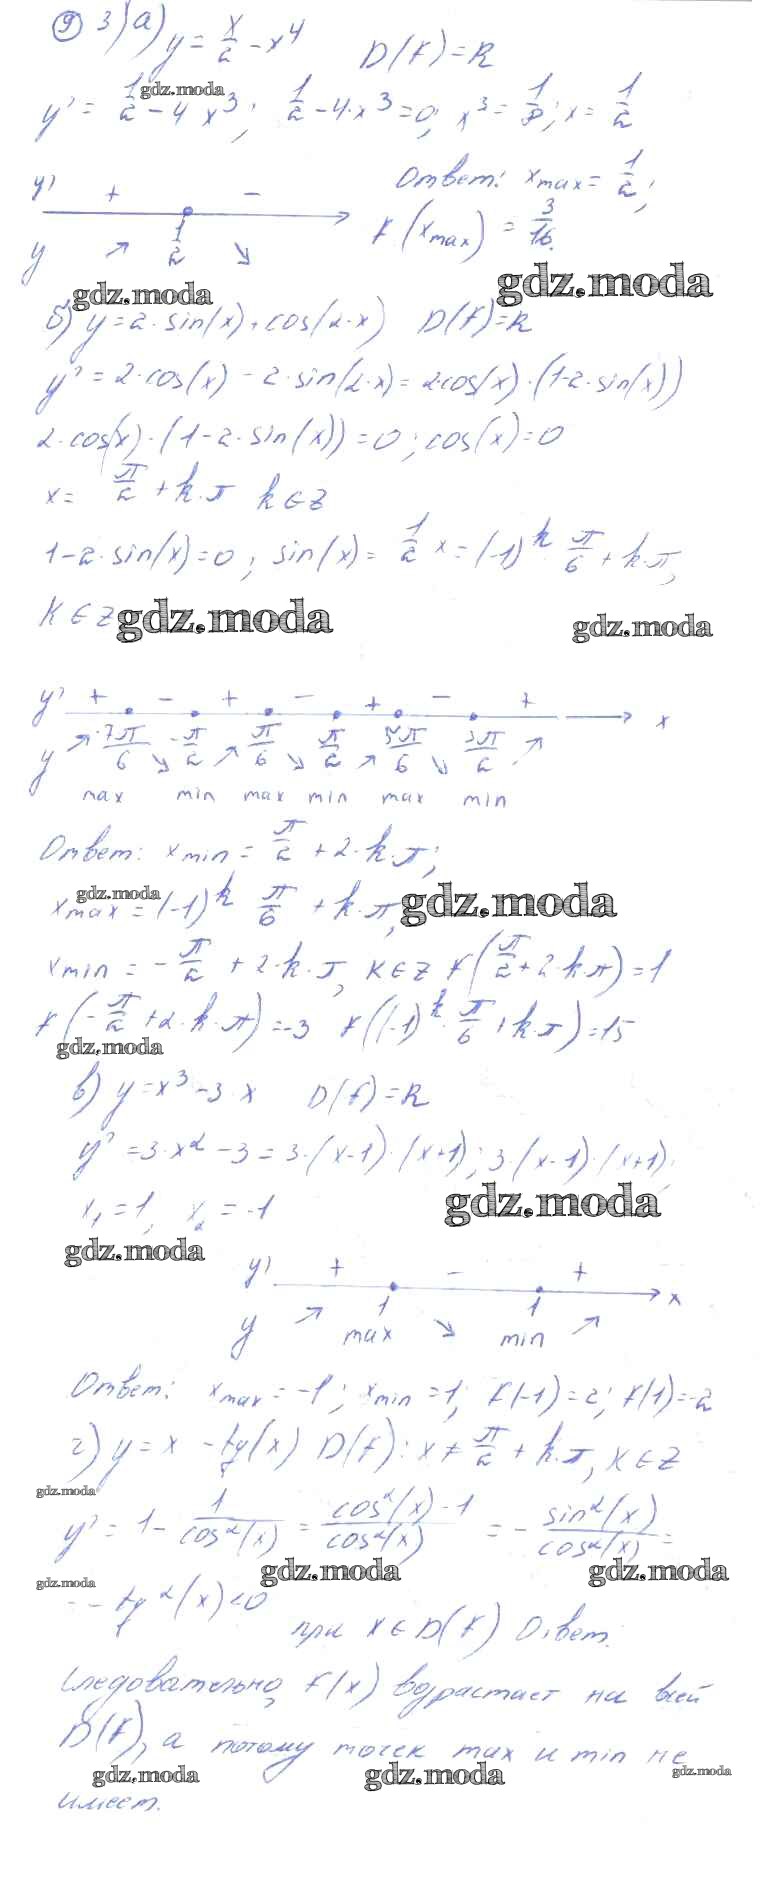 9) 3) а) y = x/2 - x⁴ D(f) = R
gdz.moda
y' = 1/2 - 4·x³; 1/2 - 4·x³ = 0; x³ = 1/8; x = 1/2
Ответ: xmax = 1/2;
y' + -
1/2
f(xmax) = 3/16.
y ↗ ↘
gdz.moda gdz.moda
б) y = 2·sin(x) + cos(2·x) D(f) = R
y' = 2·cos(x) - 2·sin(2·x) = 2cos(x)·(1-2·sin(x))
2·cos(x)·(1-2·sin(x)) = 0; cos(x) = 0
x = π/2 + k·π k∈Z
1-2·sin(x) = 0; sin(x) = 1/2 x = (-1)^k π/6 + k·π,
k∈Z gdz.moda gdz.moda
y' + - + - + - + x
y ↗ -7π/6 ↘ -π/2 ↗ π/6 ↘ π/2 ↗ 5π/6 ↘ 3π/2 ↗
max min max min max min
Ответ: xmin = π/2 + 2·k·π;
gdz.moda
xmax = (-1)^k π/6 + k·π, gdz.moda
xmin = -π/2 + 2·k·π, k∈Z f(π/2 + 2·k·π) = 1
f(-π/2 + 2·k·π) = -3 f((-1)^k·π/6 + k·π) = 15
gdz.moda
в) y = x³ - 3·x D(f) = R
y' = 3·x² - 3 = 3·(x-1)·(x+1); 3·(x-1)·(x+1);
x₁ = 1, x₂ = -1 gdz.moda
gdz.moda
y' + - + x
y ↗ 1 ↘ 1 ↗
max min
Ответ: xmax = -1; xmin = 1; f(-1) = 2; f(1) = -2
г) y = x - tg(x) D(f): x ≠ π/2 + k·π, k∈Z
gdz.moda
y' = 1 - 1/cos²(x) = cos²(x)-1/cos²(x) = - sin²(x)/cos²(x) =
gdz.moda gdz.moda
gdz.moda
= - tg²(x) < 0
при x∈D(f) Ответ:
следовательно, f(x) возрастает на всей
D(f), а потому точек max и min не
gdz.moda gdz.moda gdz.moda
имеет.